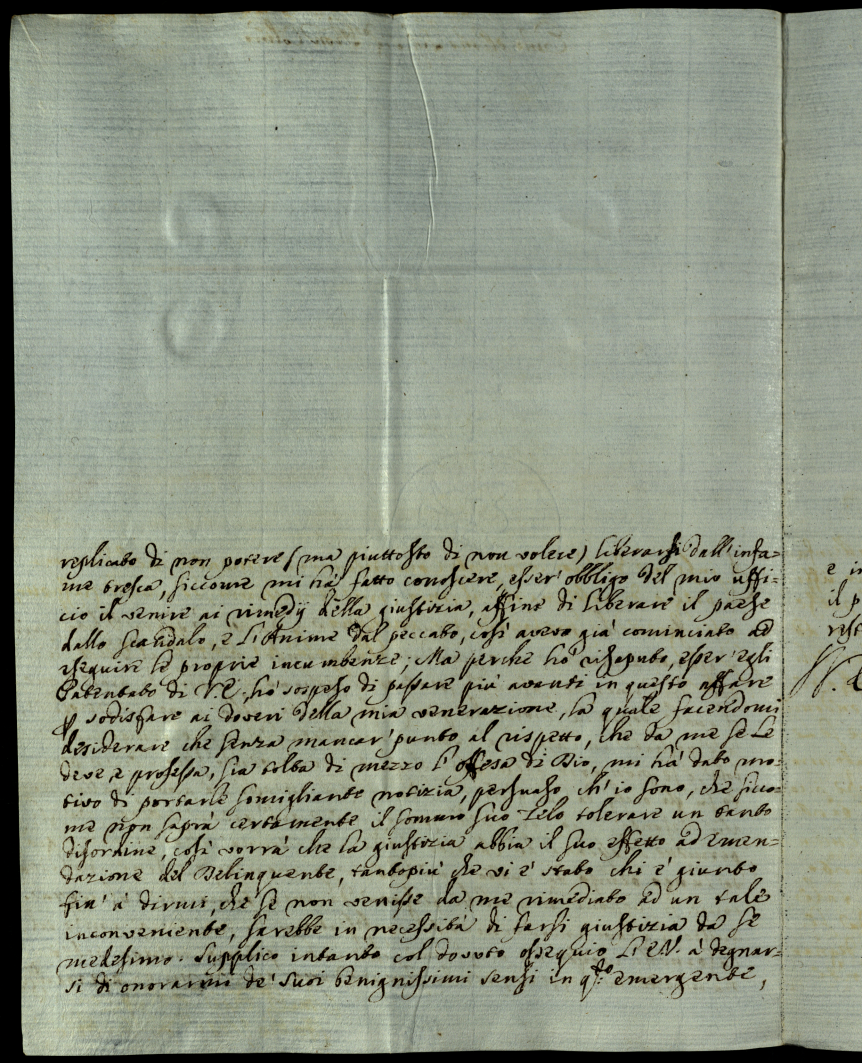 replicato di non potere (ma piuttosto di non volere) liberarsi dall'infa=
me tresca, siccome mi hà fatto conoscere, esser' obbligo del mio uffi=
cio il venire ai rimedij della giustizia, affine di liberare il paese
dallo scandalo, e l'Anime dal peccato, così avevo già cominciato ad
eseguire le proprie incumbenze; Ma perche hò risaputo, esser' egli
Patentato di V.E. hò sospeso di passare più avanti in questo affare
p sodisfare ai doveri della mia venerazione, la quale facendomi
desiderare che senza mancar' punto al rispetto, che da me se Le
deve, e professa, sia tolta di mezzo l'offesa di Dio, mi hà dato mo=
tivo di portarle somigliante notizia, persuaso, ch'io sono, che sicco=
me non saprà certamente il sommo suo Zelo tolerare un tanto
disordine, così vorrà che la giustizia abbia il suo effetto ad emen=
dazione del Delinquente, tantopiù che vi è stato chi è giunto
fin' à dirmi, che se non venisse da me rimediato ad un tale
inconveniente, sarebbe in necessità di farsi giustizia da se
medesimo. Supplico intanto col dovuto ossequio l'E.V. à degnar=
si di onorarmi de' suoi benignissimi sensi in q.sto emergente,
e in
il p
rest